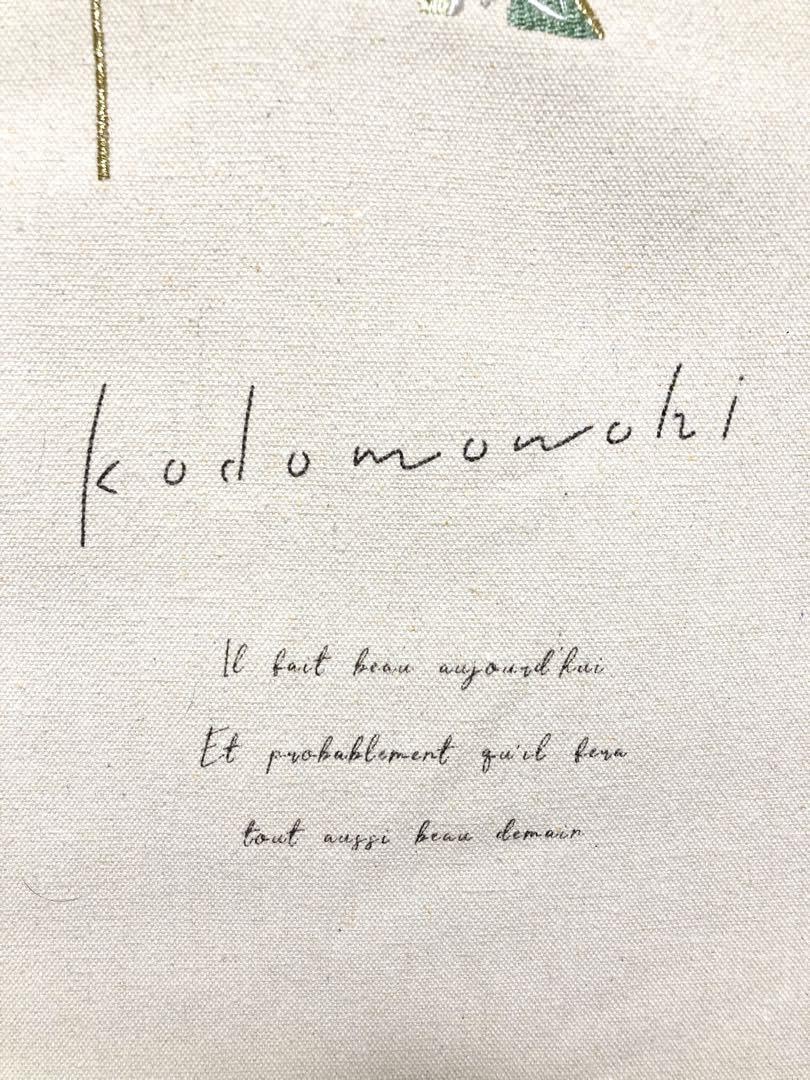 kodomonohi
Il fait beau aujourd'hui
Et probablement qu'il fera
tout aussi beau demain